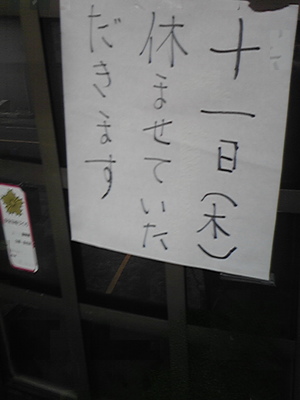 十一日(木)
休ませていた
だきます